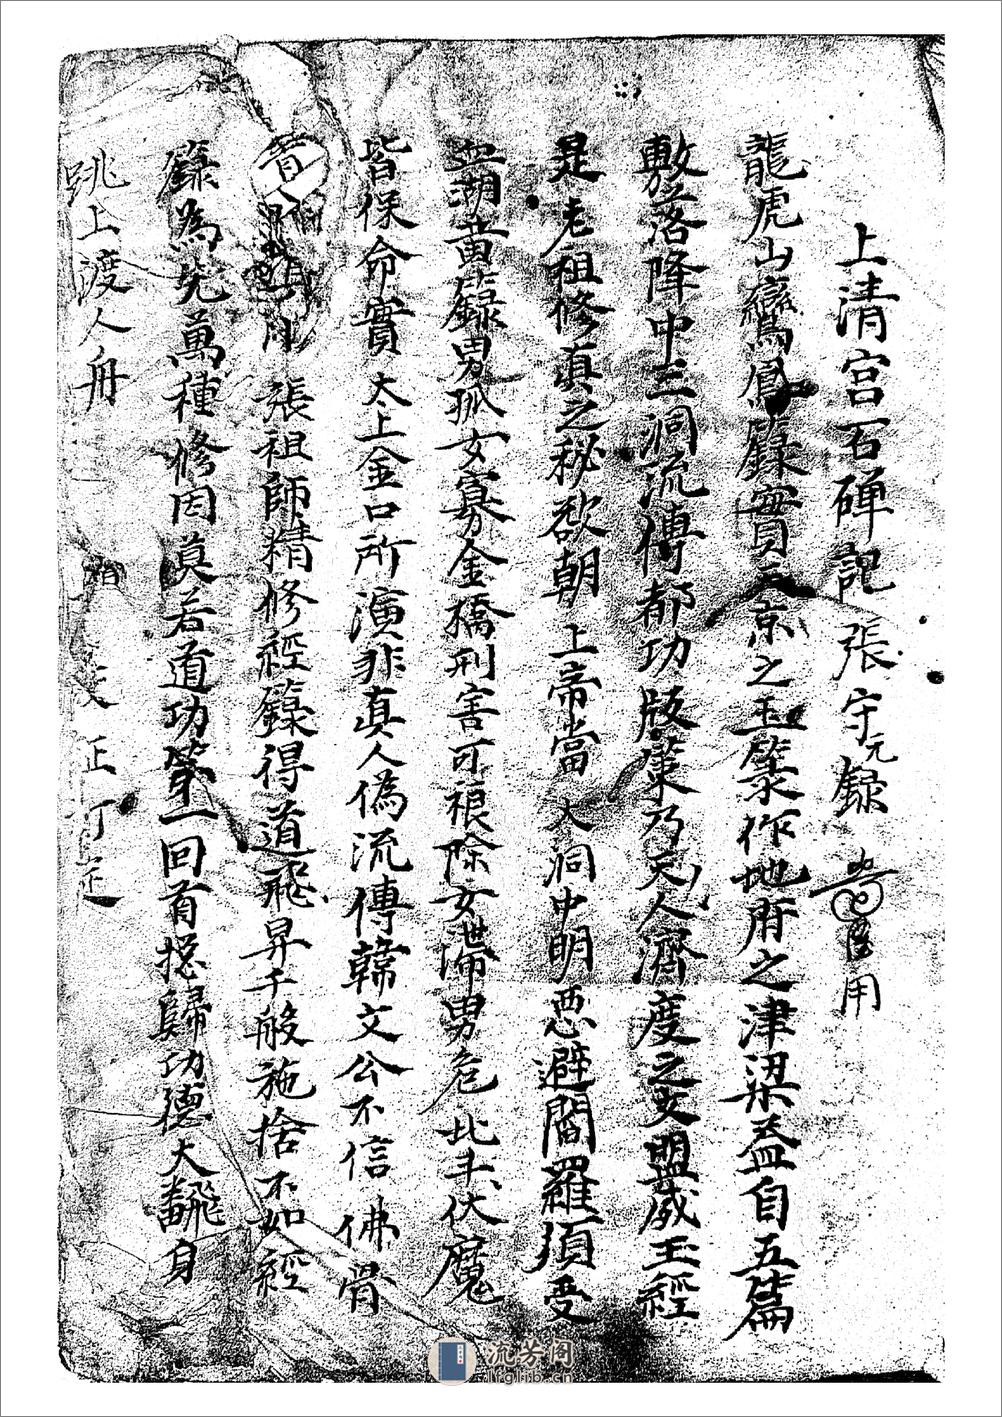 上清宮石碑記 張守元錄 用
龍虎山鸞鳳籙實天京之玉篆作地府之津梁益自五篇
敷落降中三洞流傳都功版籙乃天人濟度之文盟威玉經
是老祖修真之秘欲朝 上帝當 大洞中明惡避閻羅須受
血湖黃籙男孤女寡金橋刑害可禳除女滯男危北斗伏魔
皆保命實 太上金口所演非真人偽流傳韓文公不信 佛骨
張祖師精修經籙得道飛昇千般施捨不如經
籙為先萬種修因莫若道功第一回首總歸功德大翻身
跳上渡人舟
流芳阁
lfglib.cn